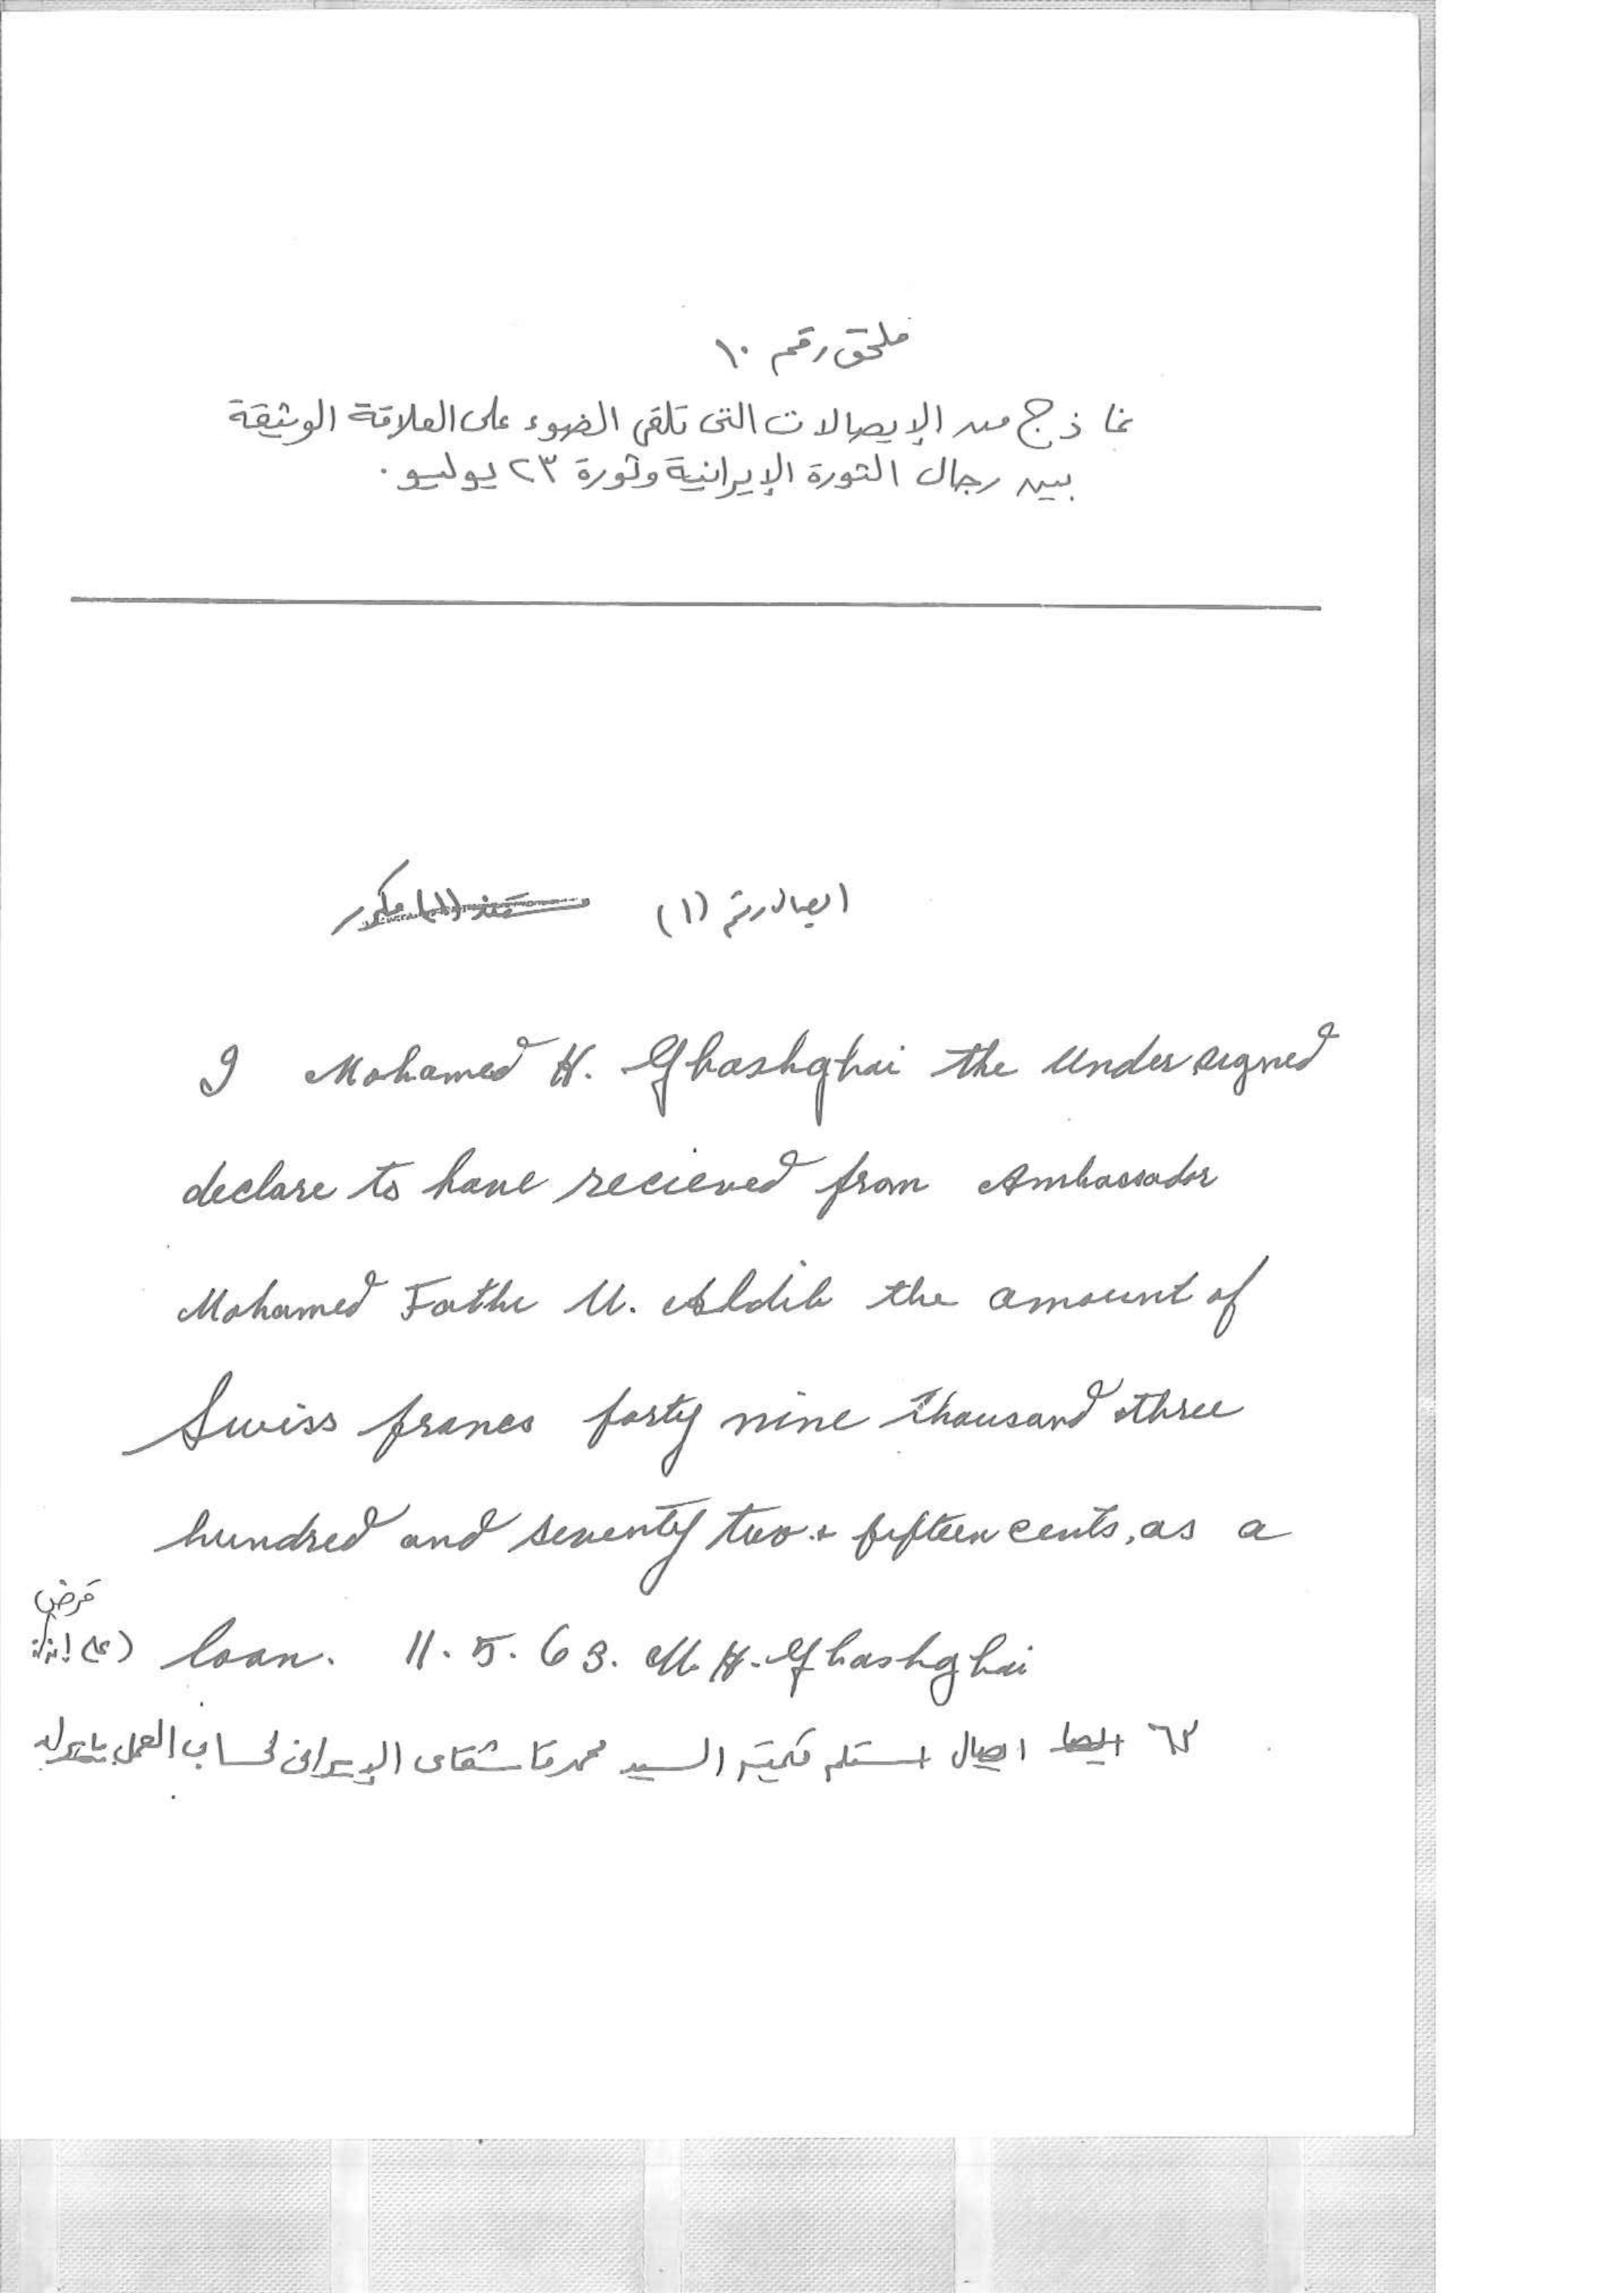 ملحق رقم ١٠
نماذج من الإيصالات التى تلقى الضوء على العلاقة الوثيقة
بين رجال الثورة الإيرانية وثورة ٢٣ يوليو.
ايصال رقم (١)
I Mohamed H. Ghashghai the Undersigned
declare to have recieved from Ambassador
Mohamed Fathi U. Aldib the amount of
Swiss francs forty nine thousand three
hundred and seventy two + fifteen cents, as a
قرض
loan. 11.5.63. M. H. Ghashghai
٦٣ ايصال استلم السيد محمد قاشقاى الإيرانى لحساب العمل بإيران